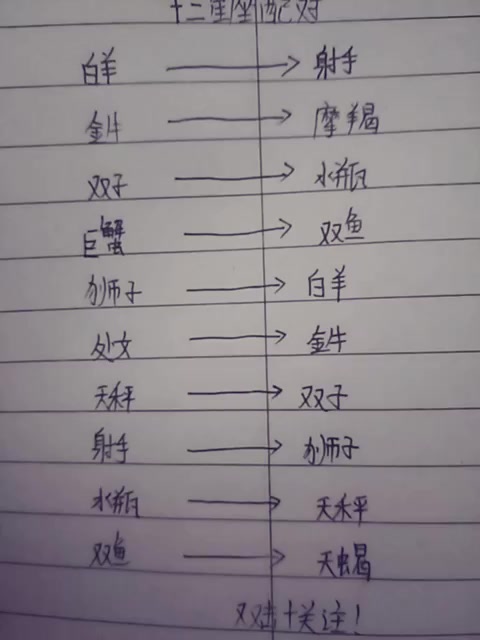 十二星座配对
白羊 → 射手
金牛 → 摩羯
双子 → 水瓶
巨蟹 → 双鱼
狮子 → 白羊
处女 → 金牛
天秤 → 双子
射手 → 狮子
水瓶 → 天秤
双鱼 → 天蝎
双击+关注!